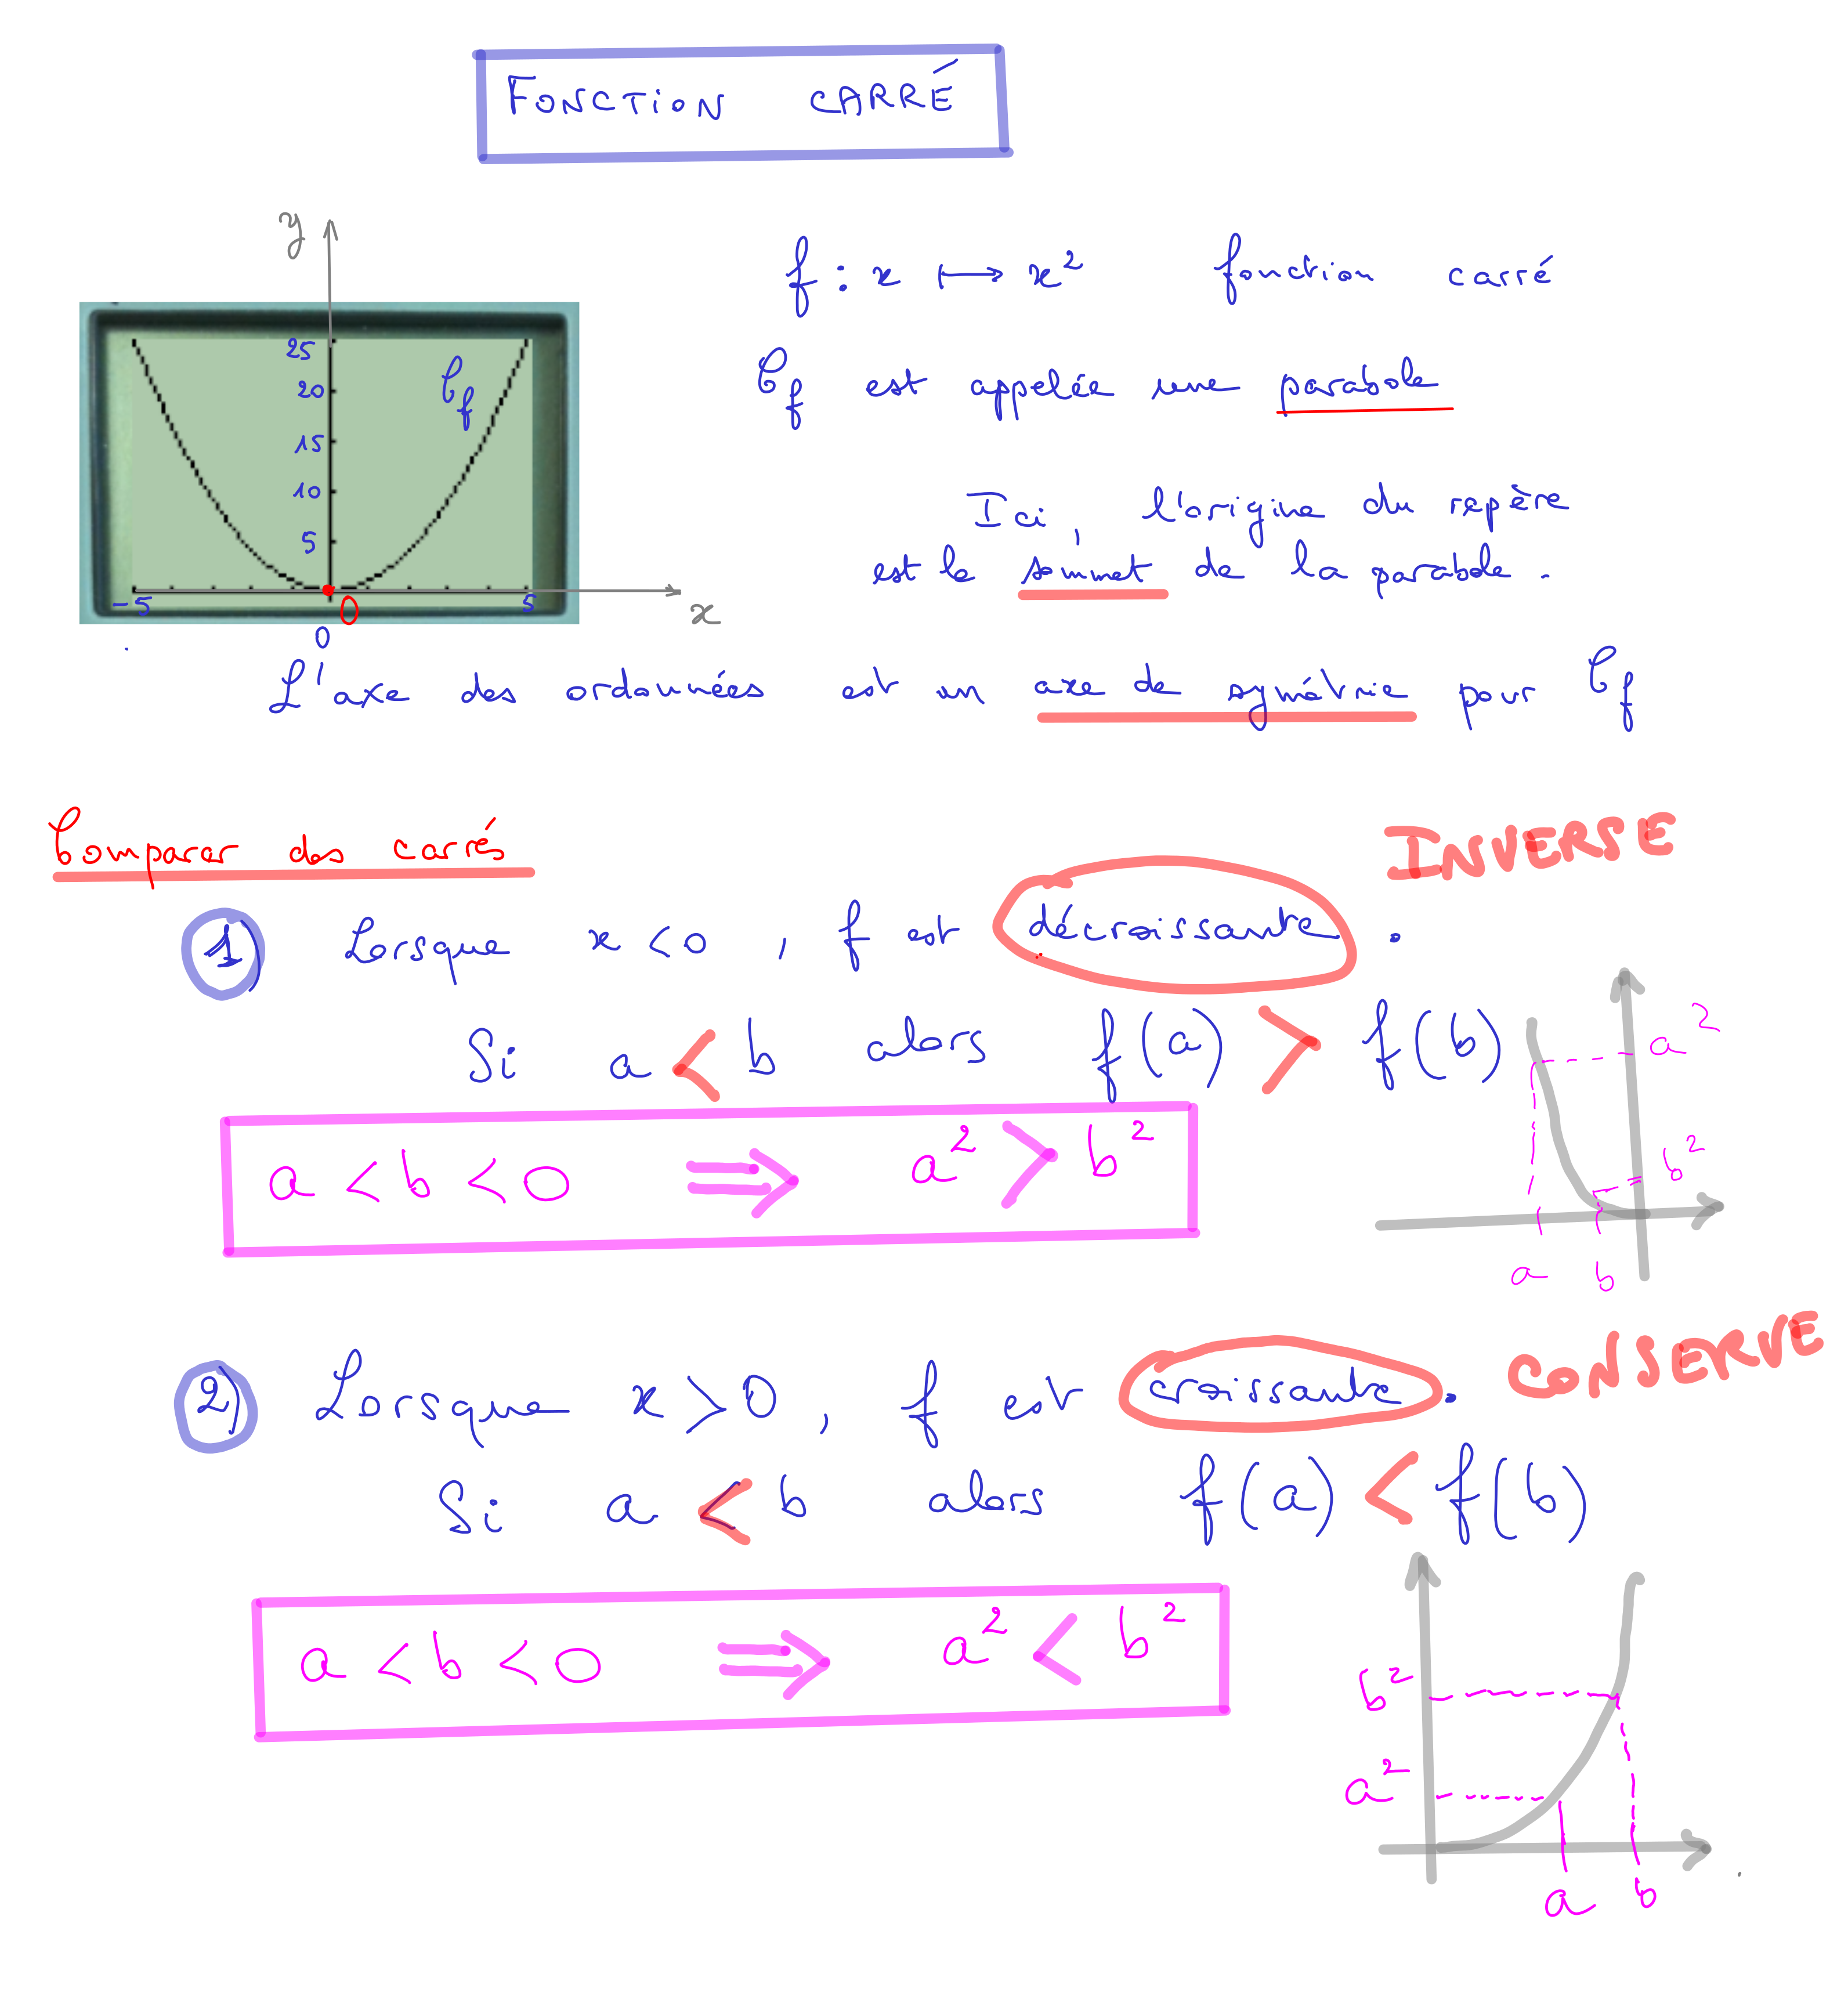 FONCTION CARRÉ
y
25
20
15
10
5
-5
5
O
0
x
𝒞f
f : x ⟼ x² fonction carré
𝒞f est appelée une parabole
Ici, l'origine du repère
est le sommet de la parabole.
L'axe des ordonnées est un axe de symétrie pour 𝒞f
Comparer des carrés
INVERSE
1) Lorsque x < 0, f est décroissante.
Si a < b alors f(a) > f(b)
a < b < 0 ⇒ a² > b²
a²
b²
a b
CONSERVE
2) Lorsque x > 0, f est croissante.
Si a < b alors f(a) < f(b)
a < b < 0 ⇒ a² < b²
b²
a²
a b